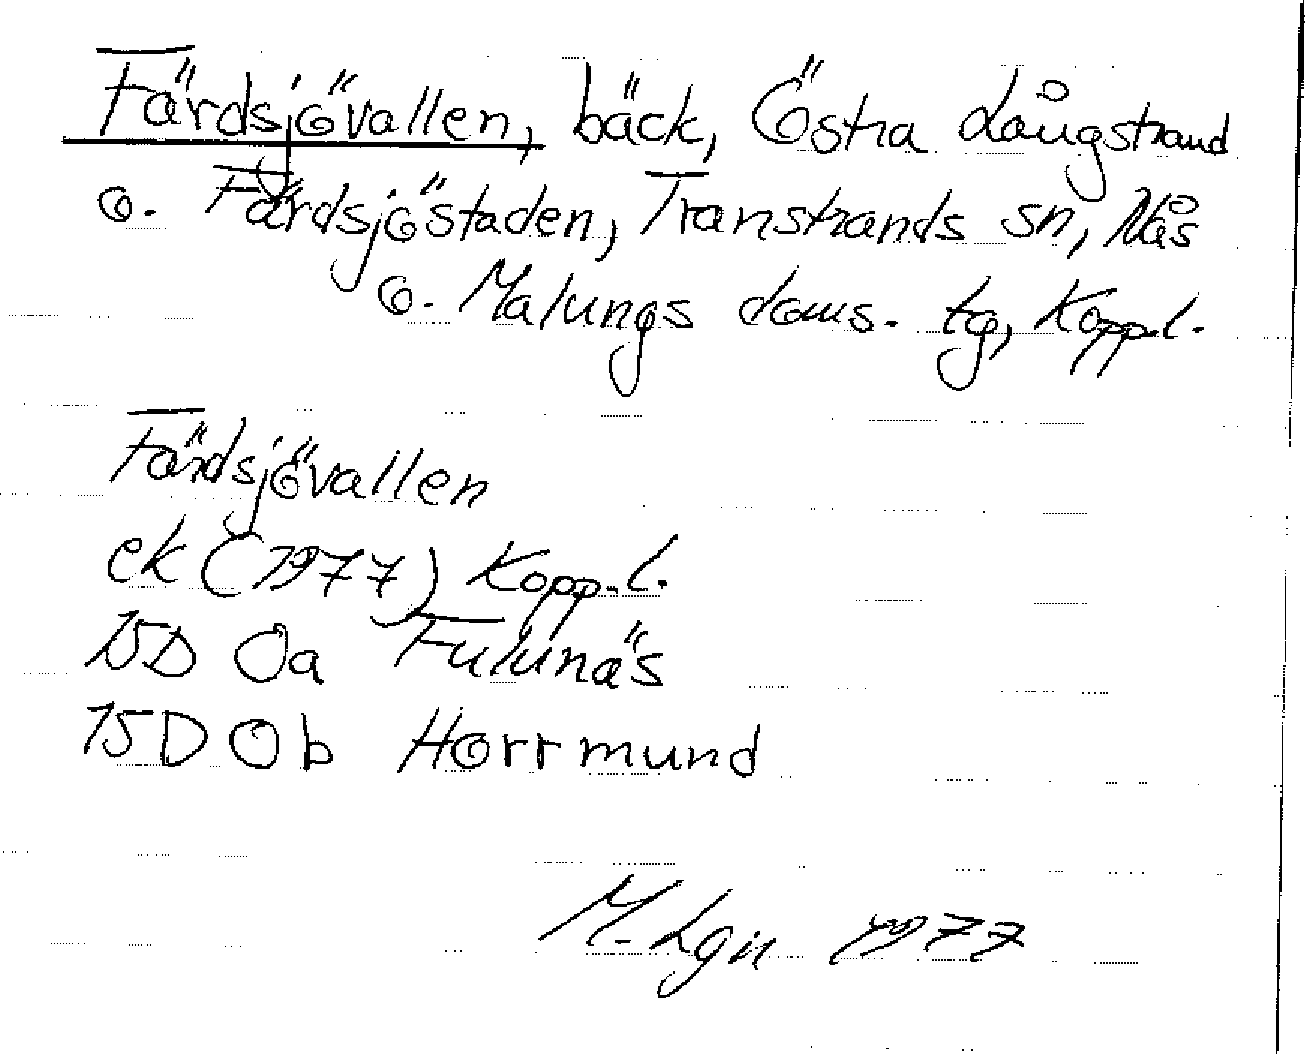 Färdsjövallen, bäck, Östra Långstrand
o. Färdsjöstaden, Transtrands sn, Nås
o. Malungs doms. tg, Kopp.l.
Färdsjövallen
ek (1977) Kopp.l.
15D 0a Fulunäs
15D 0b Horrmund
M. Lgn 1977